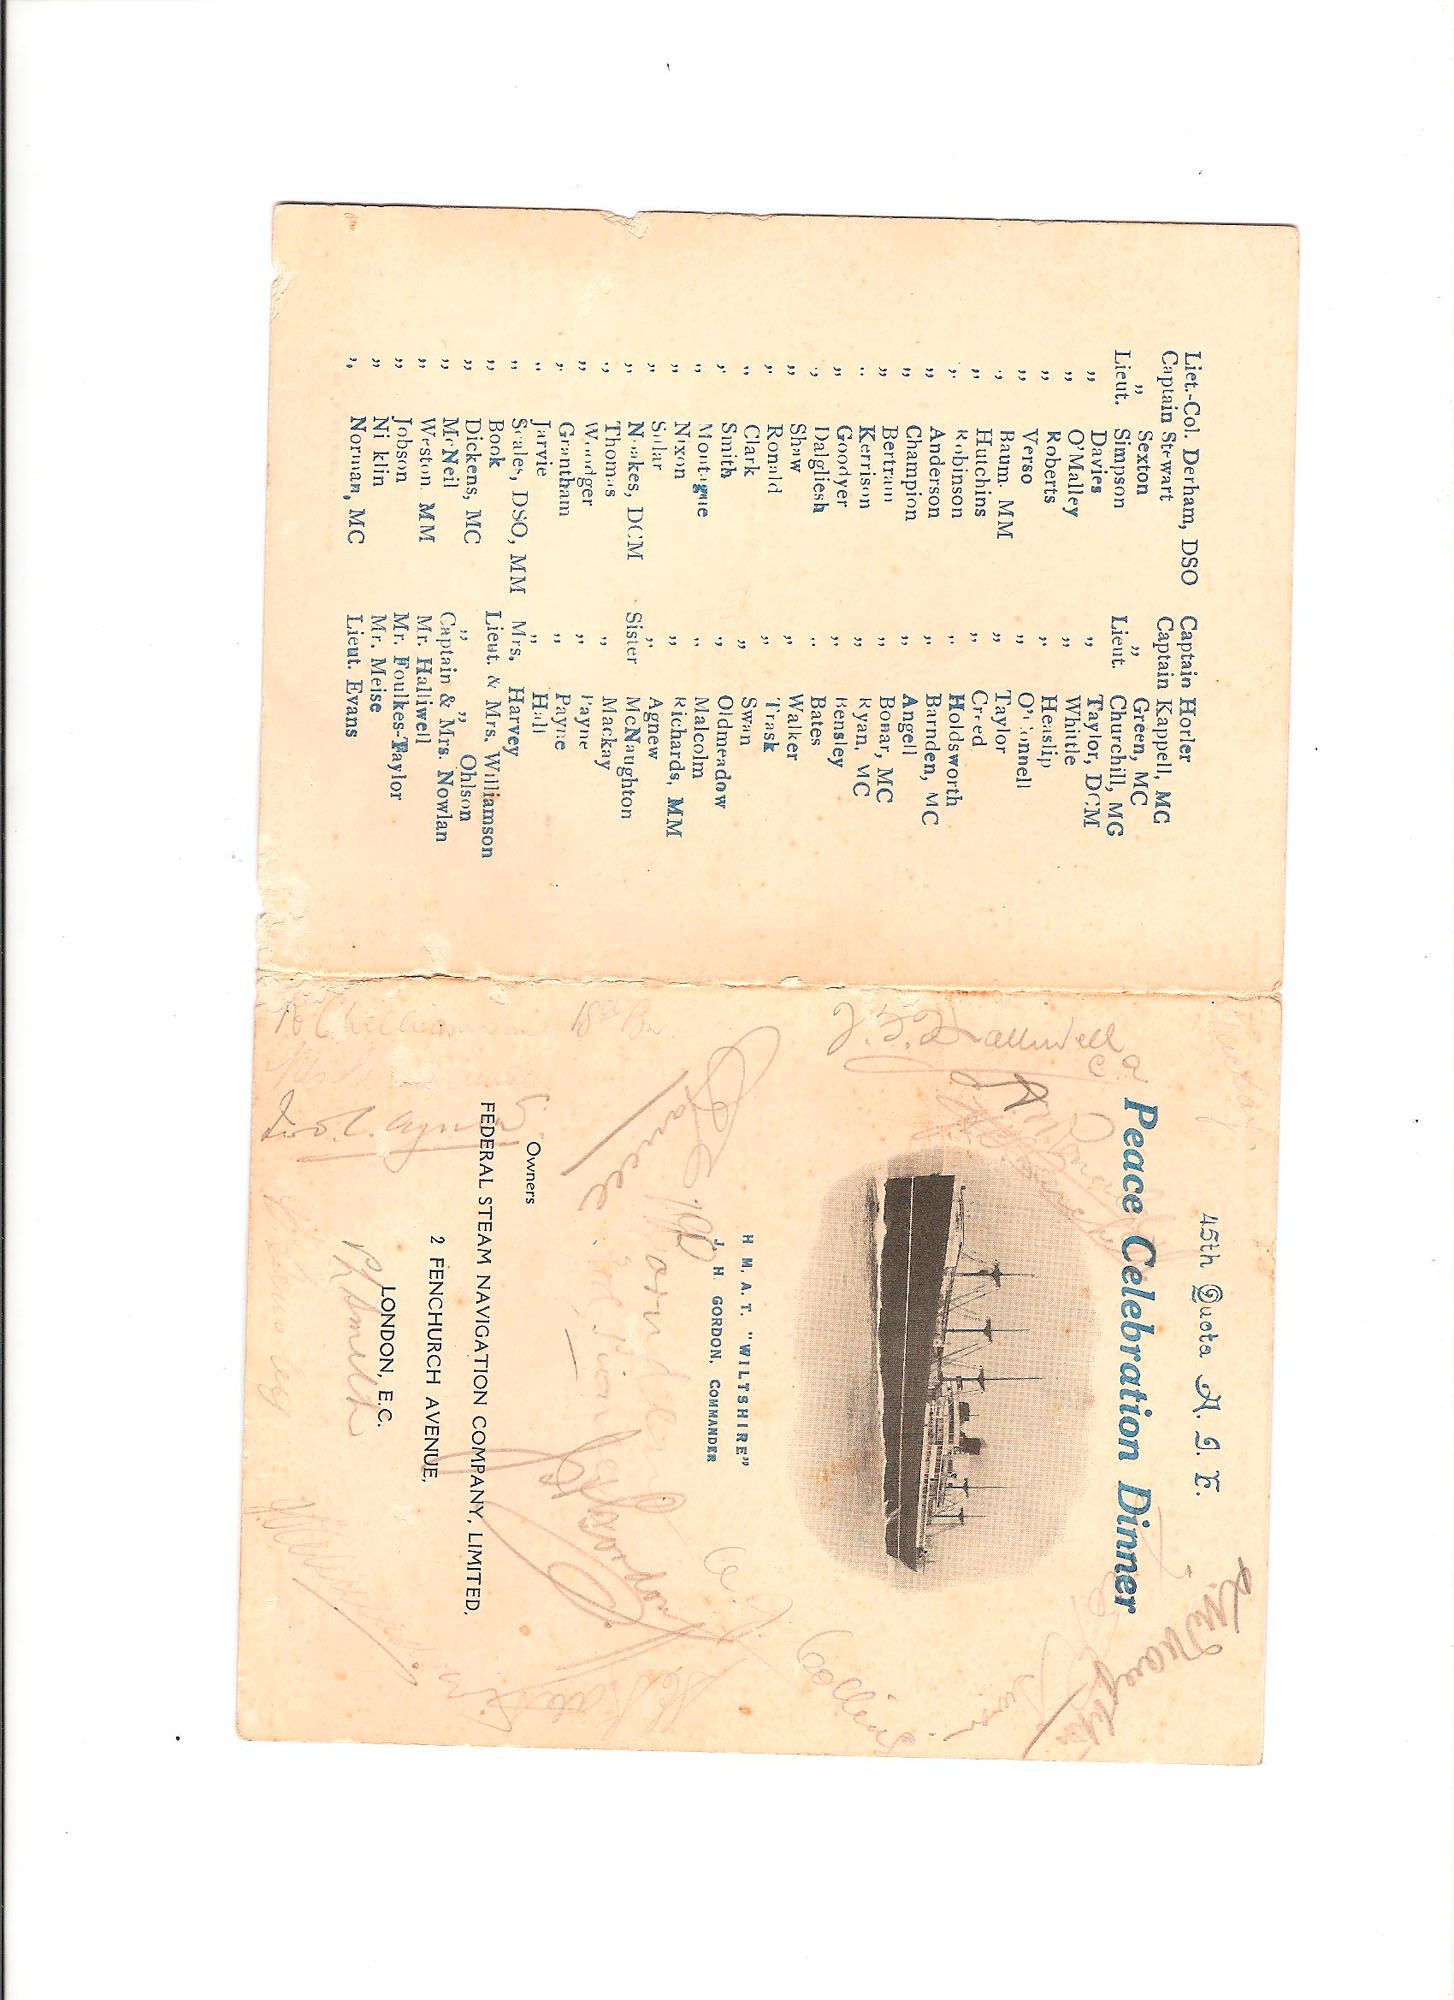 45th Quota A. I. F.
Peace Celebration Dinner
H M. A. T. "WILTSHIRE"
J. H GORDON, COMMANDER
Owners
FEDERAL STEAM NAVIGATION COMPANY, LIMITED,
2 FENCHURCH AVENUE,
LONDON, E.C.
Liet.-Col. Derham, DSO
Captain Stewart
" Sexton
Lieut. Simpson
" Davies
" O'Malley
" Roberts
" Verso
" Baum. MM
" Hutchins
" Robinson
" Anderson
" Champion
" Bertram
" Kerrison
" Goodyer
" Dalgliesh
" Shaw
" Ronald
" Clark
" Smith
" Montague
" Nixon
" Solar
" Noakes, DCM
" Thomas
" Woodger
" Grantham
" Jarvie
" Scales, DSO, MM
" Book
" Dickens, MC
" McNeil
" Weston MM
" Jobson
" Ni klin
" Norman, MC
Captain Horler
Captain Kappell, MG
" Green, MC
Lieut. Churchill, MG
" Taylor, DCM
" Whittle
" Heaslip
" O'Connell
" Taylor
" Creed
" Holdsworth
" Barnden, MC
" Angell
" Bonar, MC
" Ryan, MC
" Bensley
" Bates
" Walker
" Trask
" Swan
" Oldmeadow
" Malcolm
" Richards, MM
" Agnew
Sister McNaughton
" Mackay
" Payne
" Payne
" Hall
Mrs. Harvey
Lieut. & Mrs. Williamson
" " Ohlson
Captain & Mrs. Nowlan
Mr. Halliwell
Mr. Foulkes-Taylor
Mr. Meise
Lieut. Evans